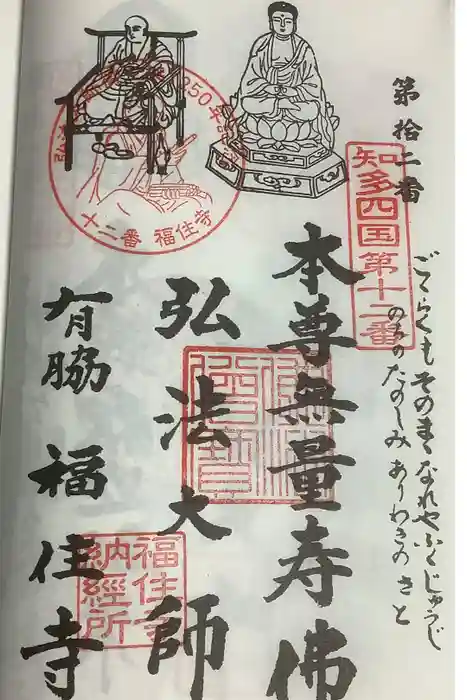 第拾二番
知多四国第十二番
ごくらくもそのまくなれやふくじゅうじ
のちのたのしみありわきのさと
本尊無量寿佛
弘法大師
有脇 福住寺
250年
十二番 福住寺
福住寺
納経所